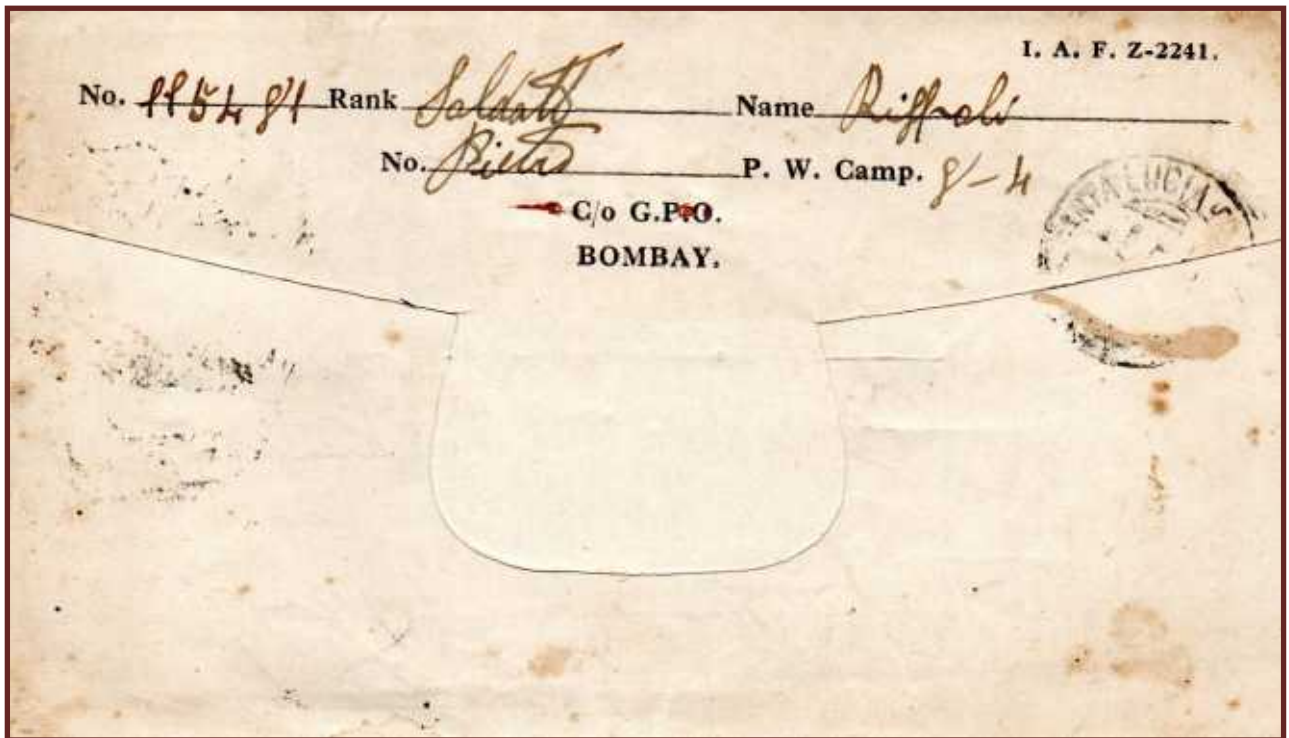 I. A. F. Z-2241.
No. 115481 Rank Soldato Name
No. Pietro P. W. Camp. 8-4
C/o G.P.O.
BOMBAY.
SANTA LUCIA